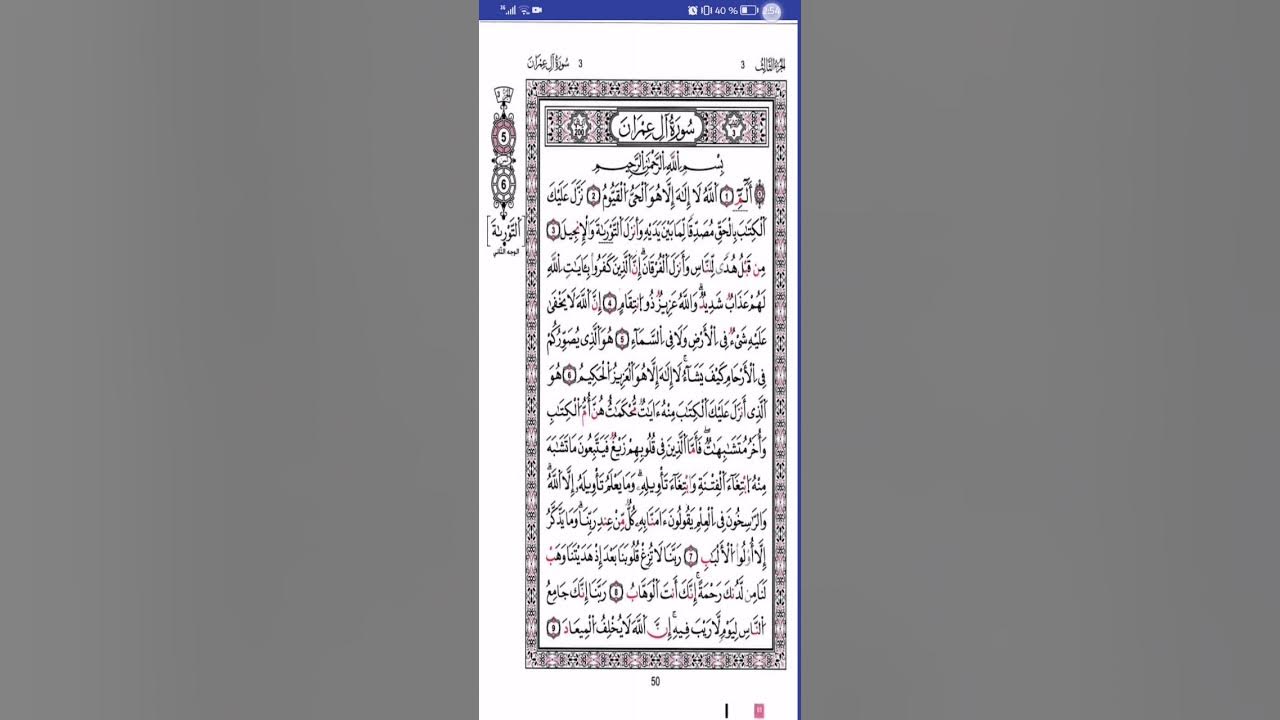 40 %
سُورَةُ آلِ عِمْرَانَ 3
3 الجُزْءُ الثَّالِثُ
200
سُورَةُ آلِ عِمْرَانَ
3
بِسْمِ اللَّهِ الرَّحْمَٰنِ الرَّحِيمِ
أَلَٓمِّٓ 1 اَ۬للَّهُ لَا إِلَٰهَ إِلَّا هُوَ اَ۬لْحَيُّ اُ۬لْقَيُّومُ 2 نَزَّلَ عَلَيْكَ
اَ۬لْكِتَٰبَ بِالْحَقِّ مُصَدِّقاٗ لِّمَا بَيْنَ يَدَيْهِ وَأَنزَلَ اَ۬لتَّوْرَىٰةَ وَالْإِنجِيلَ 3
مِن قَبْلُ هُدٗى لِّلنَّاسِ وَأَنزَلَ اَ۬لْفُرْقَانَۗ إِنَّ اَ۬لَّذِينَ كَفَرُوا بِـَٔايَٰتِ اِ۬للَّهِ
لَهُمْ عَذَابٞ شَدِيدٞۗ وَاللَّهُ عَزِيزٞ ذُو اُ۪نتِقَامٍ 4 إِنَّ اَ۬للَّهَ لَا يَخْفَىٰ
عَلَيْهِ شَيْءٞ فِي اِ۬لْأَرْضِ وَلَا فِي اِ۬لسَّمَآءِ 5 هُوَ اَ۬لَّذِي يُصَوِّرُكُمْ
فِي اِ۬لْأَرْحَامِ كَيْفَ يَشَآءُۚ لَا إِلَٰهَ إِلَّا هُوَ اَ۬لْعَزِيزُ اُ۬لْحَكِيمُ 6 هُوَ
اَ۬لَّذِي أَنزَلَ عَلَيْكَ اَ۬لْكِتَٰبَ مِنْهُ ءَايَٰتٞ مُّحْكَمَٰتٌ هُنَّ أُمُّ اُ۬لْكِتَٰبِ
وَأُخَرُ مُتَشَٰبِهَٰتٞۖ فَأَمَّا اَ۬لَّذِينَ فِي قُلُوبِهِمْ زَيْغٞ فَيَتَّبِعُونَ مَا تَشَٰبَهَ
مِنْهُ اُ۪بْتِغَآءَ اَ۬لْفِتْنَةِ وَابْتِغَآءَ تَأْوِيلِهِۦۗ وَمَا يَعْلَمُ تَأْوِيلَهُۥ إِلَّا اَ۬للَّهُۗ
وَالرَّٰسِخُونَ فِي اِ۬لْعِلْمِ يَقُولُونَ ءَامَنَّا بِهِۦ كُلّٞ مِّنْ عِندِ رَبِّنَاۗ وَمَا يَذَّكَّرُ
إِلَّا أُوْلُوا اُ۬لْأَلْبَٰبِ 7 رَبَّنَا لَا تُزِغْ قُلُوبَنَا بَعْدَ إِذْ هَدَيْتَنَا وَهَبْ
لَنَا مِن لَّدُنكَ رَحْمَةًۚ إِنَّكَ أَنتَ اَ۬لْوَهَّابُ 8 رَبَّنَا إِنَّكَ جَامِعُ
اُ۬لنَّاسِ لِيَوْمٖ لَّا رَيْبَ فِيهِۚ إِنَّ اَ۬للَّهَ لَا يُخْلِفُ اُ۬لْمِيعَادَ 9
5
6
[اَلتَّوْرَىٰةَ]
الوجه الثاني
50